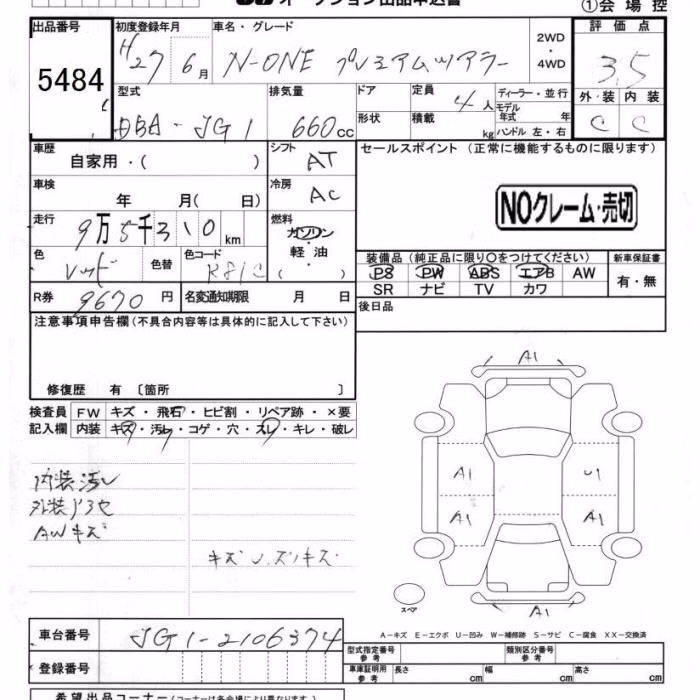 オークション出品申込書
①会場控
出品番号 初度登録年月 車名・グレード 評価点
5484
H27 6月 N-ONE プレミアムツアラー 2WD・4WD 3.5
型式 排気量 ドア 定員 4人 ディーラー・並行 外・装 内装
DBA-JG1 660cc 形状 積載 kg モデル年式 年 ハンドル 左・右 C C
車歴 自家用・( ) シフト AT セールスポイント (正常に機能するものに限ります)
車検 年 月( 日) 冷房 AC
NOクレーム・売切
走行 9万5千310km 燃料 ガソリン・軽油 ( )
装備品(純正品に限り○をつけてください) 新車保証書
色 レッド 色替 色コード R81C
PS PW ABS エアB AW 有・無
SR ナビ TV カワ
R券 9670円 名変通知期限 月 日
後日品
注意事項申告欄(不具合内容等は具体的に記入して下さい)
修復歴 有 〔箇所 〕
検査員 FW キズ・飛石・ヒビ割・リペア跡・×要
記入欄 内装 キズ・汚レ・コゲ・穴・スレ・キレ・破レ
内装汚レ
AWキズ
A1
A1 U1
A1 A1
A1
スペア
A−キズ E−エクボ U−凹み W−補修跡 S−サビ C−腐食 XX−交換済
車台番号 JG1-2106374
登録番号
型式指定番号 参考 類別区分番号 参考
車庫証明用 参考 長さ cm 幅 cm 高さ cm
希望出品コーナー(コーナーは各会場により異なります)